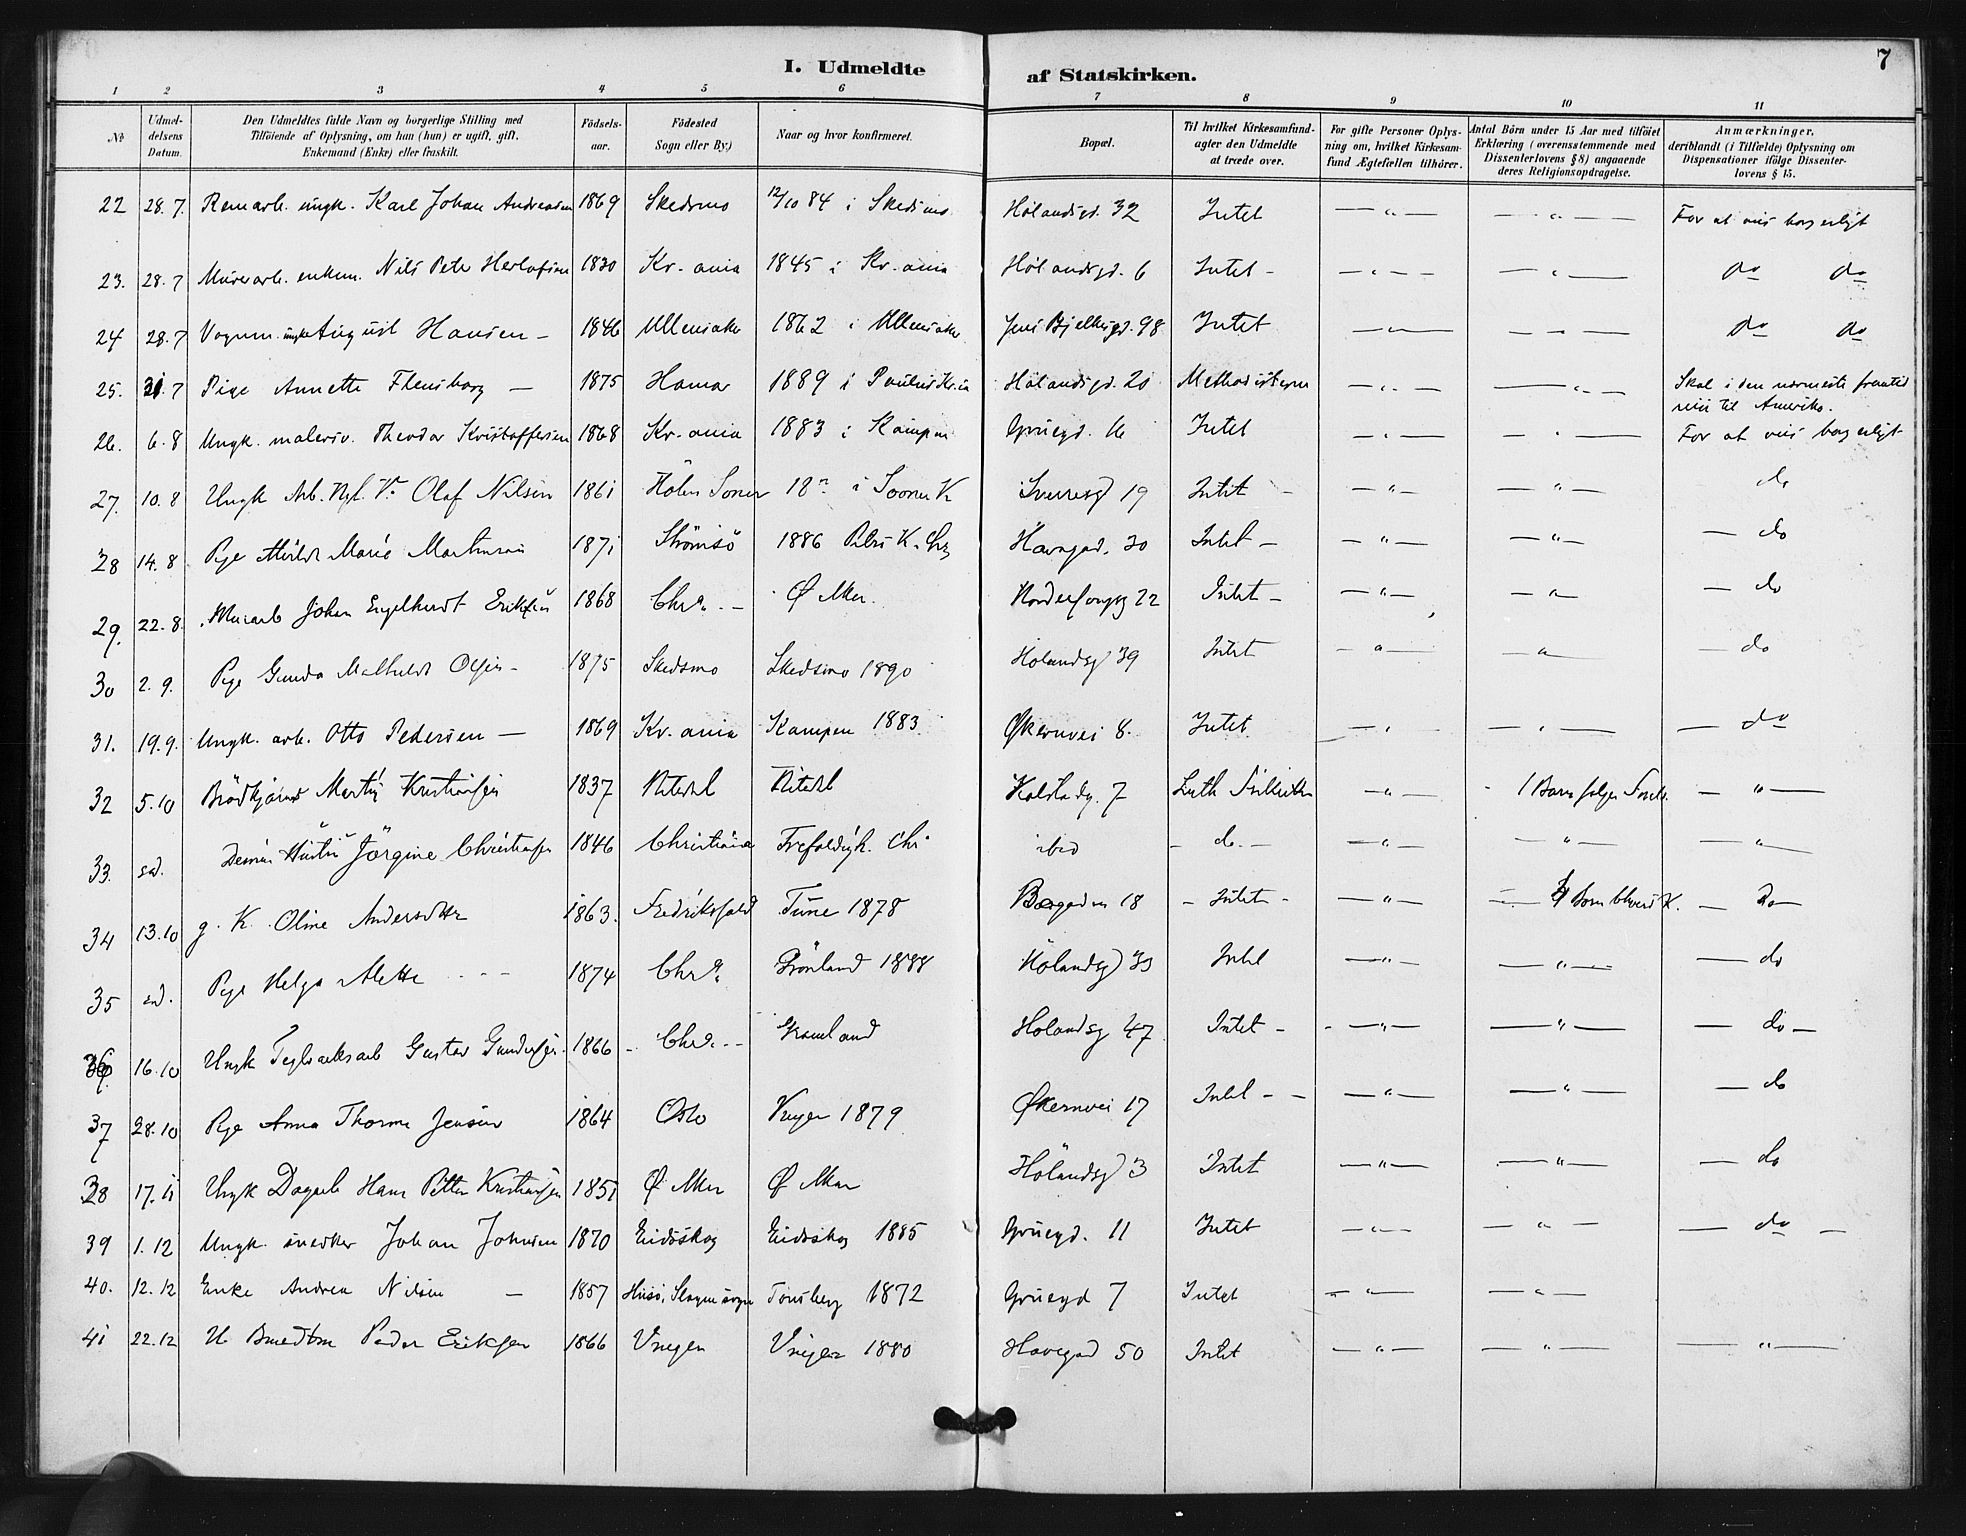 7
I. Udmeldte af Statskirken.
1 2 3 4 5 6 7 8 9 10 11
No
Udmel-
delsens
Datum.
Den Udmeldtes fulde Navn og borgerlige Stilling med
Tilföiende af Oplysning, om han (hun) er ugift, gift,
Enkemand (Enke) eller fraskilt.
Födsels-
aar.
Födested
Sogn eller By.)
Naar og hvor konfirmeret.
Bopæl.
Til hvilket Kirkesamfund-
agter den Udmeldte
at træde over.
For gifte Personer Oplys-
ning om, hvilket Kirkesam-
fund Ægtefællen tilhörer.
Antal Börn under 15 Aar med tilföiet
Erklæring (overensstemmende med
Dissenterlovens § 8) angaaende
deres Religionsopdragelse.
Anmærkninger,
deriblandt (i Tilfælde) Oplysning om
Dispensationer ifölge Dissenter-
lovens § 15.
22 28.7. ungk. Karl Johan Andreasen 1869 Skedsmo 12/10 84 i Skedsmo Hölandsgd. 32 Intet — " — — " — For at vies borgerligt
23. 28.7 Murerarb. enkem. Nils Peter Herlofsen 1830 Kr.ania 1845 i Kr.ania Hölandsgd. 6 Intet — — " — — " — do do
24 28.7 Vognm. ungk August Hansen — 1846 Ullensaker 1862 i Ullensaker Jens Bjelkesgd. 98 Intet — " — — " — do do
25. 31.7 Pige Annette Flensborg — 1875 Hamar 1889 i Paulus Kr.ia Hölandsgd. 20 Methodisterne — " — — " — Skal i den nærmeste fremtid
reise til Amerika.
26. 6.8 Ungk. malersv. Theodor Kristoffersen 1868 Kr.ania 1883 i Kampen Gruegd. 16 Intet — " — — " — For at vies borgerligt
27. 10.8 Ungk Arb. Olaf Nilsen 1861 Hölen Soner i Sooner K Sverresgd 19 Intet — — " — — " — do
28 14.8 Pige Marie Martinsen 1871 Strömsö 1886 Petri K. Havnegad. 30 Intet — — " — — " — — do
29. 22.8. Murarb Johan Engelhardt Eriksen 1868 Chra. — Ø Aker. 22 Intet — — " — — " — — do
30 2.9. Pige Gunda Mathilde Olsen — 1875 Skedsmo Skedsmo 1890 Hölandsg 39 Intet — " — — " — — do
31. 19.9. Ungk. arb. Otto Pedersen — 1869 Kr.ania Kampen 1883 Økernvei 8. Intet — " — — " — — do
32 5.10 Martin Kristiansen 1837 Nitedal Nitedal Kolstadg. 7 Luth Frikirken — " — 1 Barn følger — " —
33. ed. Dennes Hustru Jörgine Christiansen 1846 Christiania Trefoldigk. Chr ibid — do. — — " — — " — — " —
34 13.10 g. K. Oline Andersdtr 1863. Fredrikshald Tune 1878 18 — Intet — — " — 4 Børn K. — do —
35 ed. Pige Helga Alette 1874 Chra. Grönland 1888 Hölandsg 33 Intet — " — — " — — do
36 16.10 Ungk Teglverksarb Gustav Gundersen. 1866 — Chra. — Grönland Hölandsg 47 Intet — — " — — " — — do —
37 28.10 Pige Anna Thorine Jensen 1864 Oslo Vaaler 1879 Økernvei 17 Intet — — — " — — " — — do
38 17.11 Ungk Dagarb Hans Petter Kristiansen 1851 Ø Aker Ø Aker Hölandsg 3 Intet — " — — " — — do
39 1.12 Ungk. snedker Johan Johnsen 1870 Eidsskog Eidsskog 1885 Gruegd. 11 Intet — " — — " — — do —
40. 12.12 Enke Andrea Nilsen — 1857 Husö, Slagen sogn Tønsberg 1872 Gruegd 7 Intet — " — — " —
41 22.12 U Peder Eriksen 1866 Vinger Vinger 1880 Havegad 50 Intet — " — — " — — " —